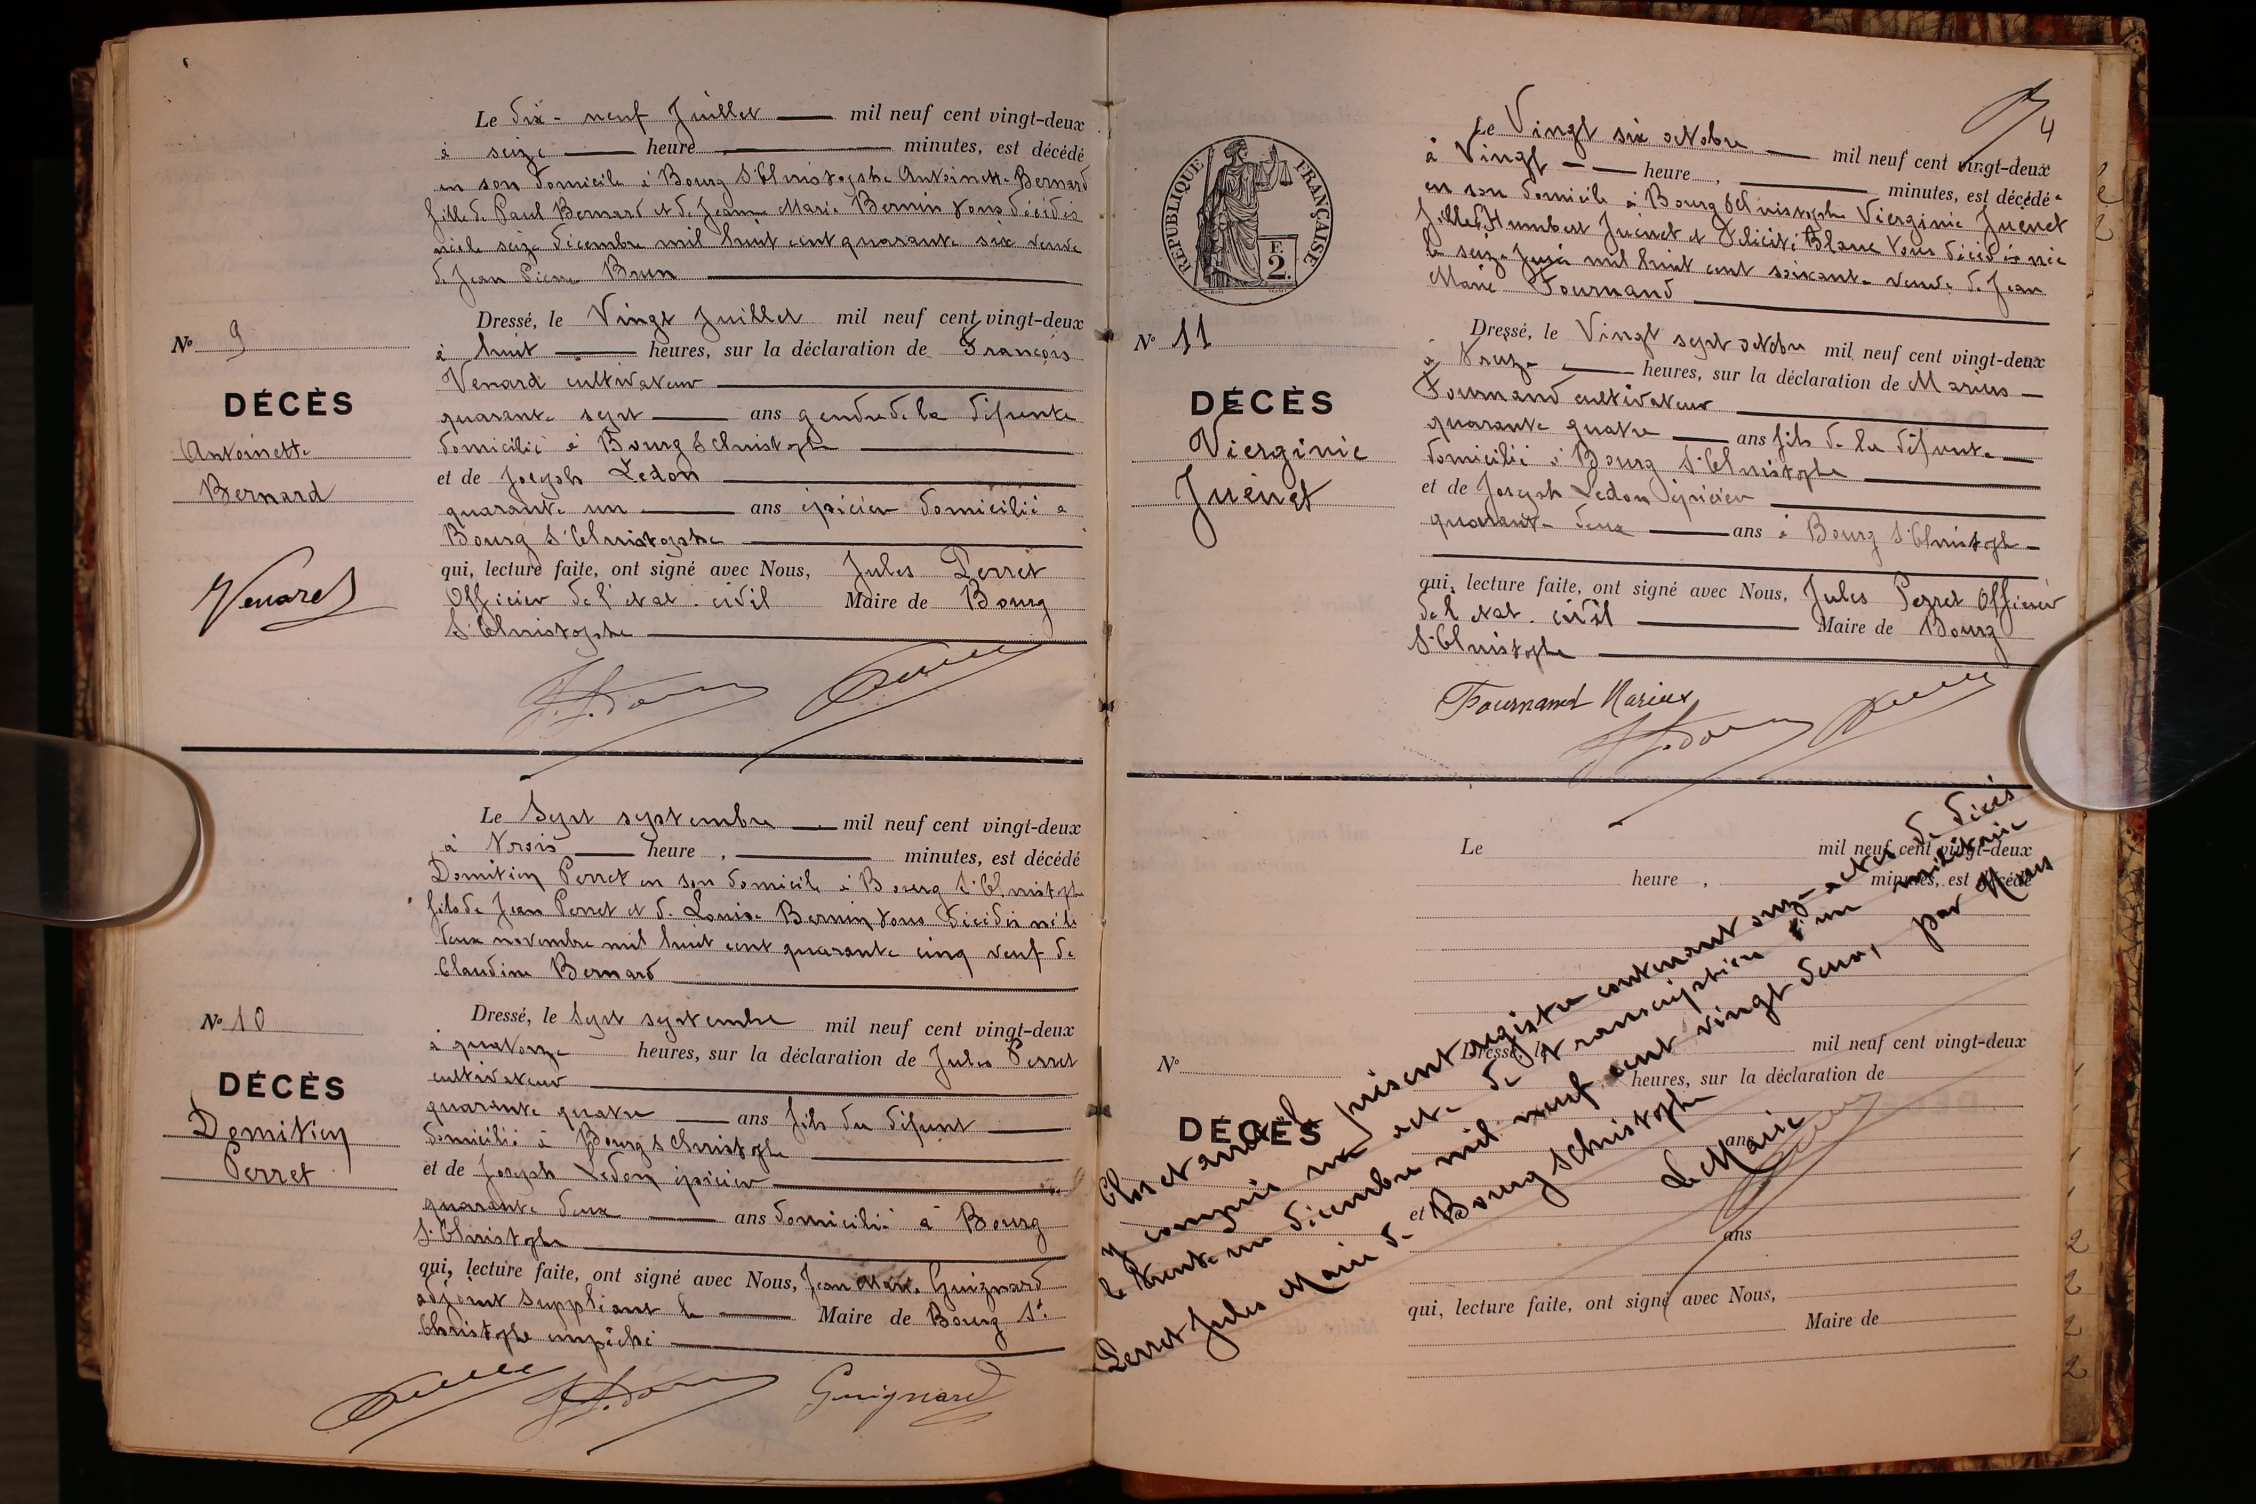 Le dix-neuf Juillet mil neuf cent vingt-deux
à seize heure minutes, est décédé
en son domicile à Bourg St Christophe Antoinette Bernard
fille de Paul Bernard et de Jeanne Marie Bernin tous décédés
née le seize décembre mil huit cent quarante six veuve
de Jean Pierre Brun
No 9
DÉCÈS
Antoinette
Bernard
Dressé, le Vingt Juillet mil neuf cent vingt-deux
à huit heures, sur la déclaration de François
Venard cultivateur
quarante sept ans gendre de la défunte
domicilié à Bourg St Christophe
et de Joseph Ledon
quarante un ans épicier domicilié a
Bourg St Christophe
qui, lecture faite, ont signé avec Nous, Jules Perret
Officier de l'etat civil Maire de Bourg
St Christophe
Venard
Le Sept septembre mil neuf cent vingt-deux
à trois heure , minutes, est décédé
Domitien Perret en son domicile à Bourg St Christophe
fils de Jean Perret et de Louise Bernin tous décédés né le
deux novembre mil huit cent quarante cinq veuf de
Claudine Bernard
No 10
DÉCÈS
Domitien
Perret
Dressé, le Sept septembre mil neuf cent vingt-deux
à quatorze heures, sur la déclaration de Jules Perret
cultivateur
quarante quatre ans fils du défunt
domicilié à Bourg St Christophe
et de Joseph Ledon épicier
quarante deux ans domicilié à Bourg
St Christophe
qui, lecture faite, ont signé avec Nous, Jean Marie Guignard
adjoint suppléant le Maire de Bourg St
Christophe empêché
Guignard
4
RÉPUBLIQUE FRANÇAISE
F.
2.
Le Vingt six octobre mil neuf cent vingt-deux
à Vingt heure , minutes, est décédé
en son domicile à Bourg St Christophe Vierginie Juenet
fille d'Humbert Juenet et Félicité Blanc tous décédés née
le seize Juin mil huit cent soixante veuve de Jean
Marie Fournand
No 11
DÉCÈS
Vierginie
Juenet
Dressé, le Vingt sept octobre mil neuf cent vingt-deux
à treize heures, sur la déclaration de Marius
Fournand cultivateur
quarante quatre ans fils de la défunte
domicilié à Bourg St Christophe
et de Joseph Ledon épicier
quarante deux ans à Bourg St Christophe
qui, lecture faite, ont signé avec Nous, Jules Perret Officier
de l'etat civil Maire de Bourg
St Christophe
Fournand Marius
Le mil neuf cent vingt-deux
heure , minutes, est décédé
No
DÉCÈS
Dressé, le mil neuf cent vingt-deux
heures, sur la déclaration de
ans
et de
ans
qui, lecture faite, ont signé avec Nous,
Maire de
Clos et arrêté le présent registre contenant onze actes de décès
y compris un acte de transcription d'un militaire
le trente un décembre mil neuf cent vingt deux, par Nous
Perret Jules Maire de Bourg St Christophe
Le Maire